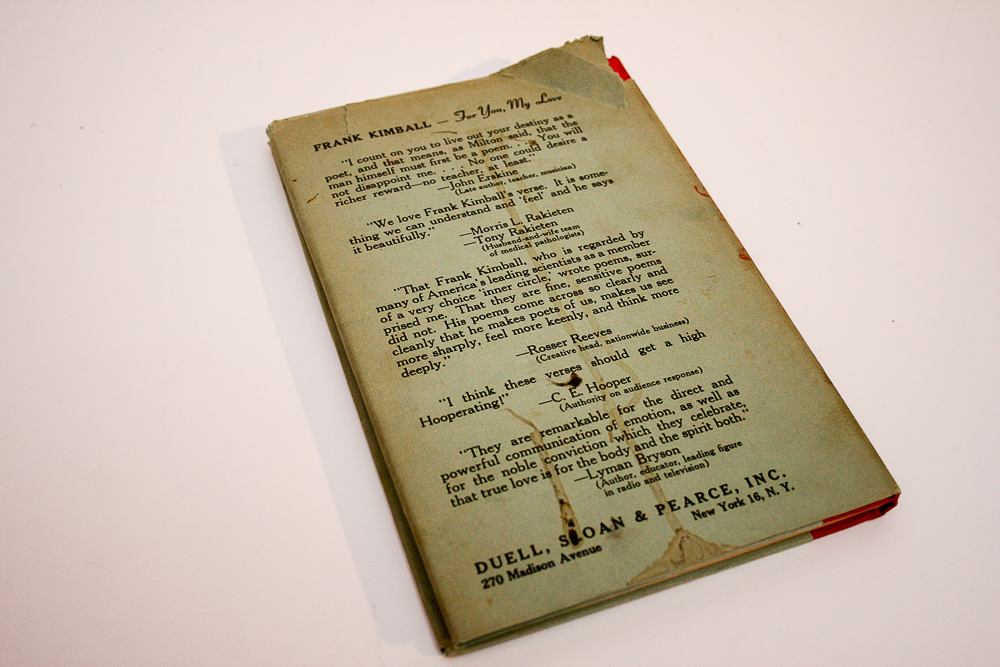 FRANK KIMBALL — For You, My Love
"I count on you to live out your destiny as a
poet, and that means, as Milton said, that the
man himself must first be a poem. . . . You will
not disappoint me. . . . No one could desire a
richer reward—no teacher, at least."
—John Erskine
(Late author, teacher, musician)
"We love Frank Kimball's verse. It is some-
thing we can understand and 'feel' and he says
it beautifully."
—Morris L. Rakieten
—Tony Rakieten
(Husband-and-wife team
of medical pathologists)
"That Frank Kimball, who is regarded by
many of America's leading scientists as a member
of a very choice 'inner circle,' wrote poems, sur-
prised me. That they are fine, sensitive poems
did not. His poems come across so clearly and
cleanly that he makes poets of us, makes us see
more sharply, feel more keenly, and think more
deeply."
—Rosser Reeves
(Creative head, nationwide business)
"I think these verses should get a high
Hooperating!"
—C. E. Hooper
(Authority on audience response)
"They are remarkable for the direct and
powerful communication of emotion, as well as
for the noble conviction which they celebrate,
that true love is for the body and the spirit both."
—Lyman Bryson
(Author, educator, leading figure
in radio and television)
DUELL, SLOAN & PEARCE, INC.
270 Madison Avenue New York 16, N. Y.